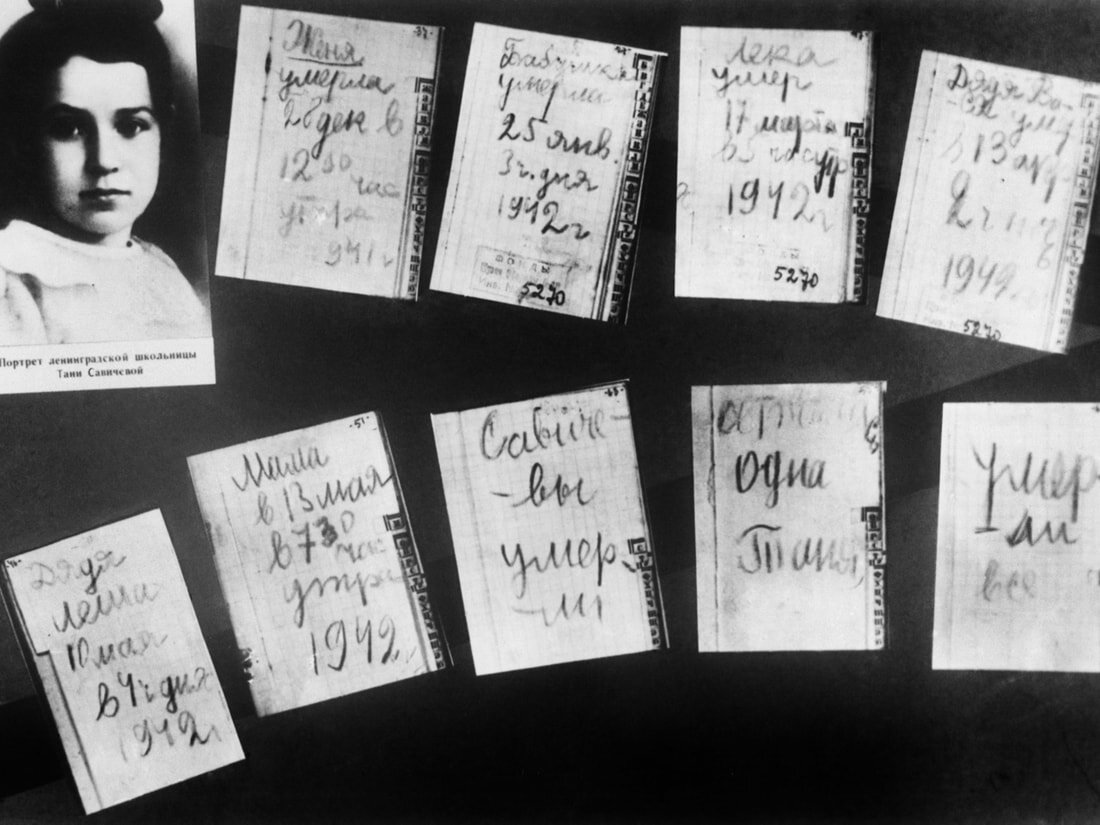 Портрет ленинградской школьницы
Тани Савичевой
Женя
умерла
28 дек в
12 30 час
утра
941 г
Бабушка
умерла
25 янв.
3 ч. дня
1942 г
ФОНДЫ
5270
Лека
умер
17 марта
в 5 час утр
1942 г
5270
Дядя Ва-
-ся ум
в 13 апр
2 ч
1942
5270
Дядя
Леша
10 мая
в 4 ч дня
1942 г
-51-
Мама
в 13 мая
в 7 30 час
утра
1942
Савиче-
-вы
умер-
-ли
одна
Таня
Умер-
-ли
все